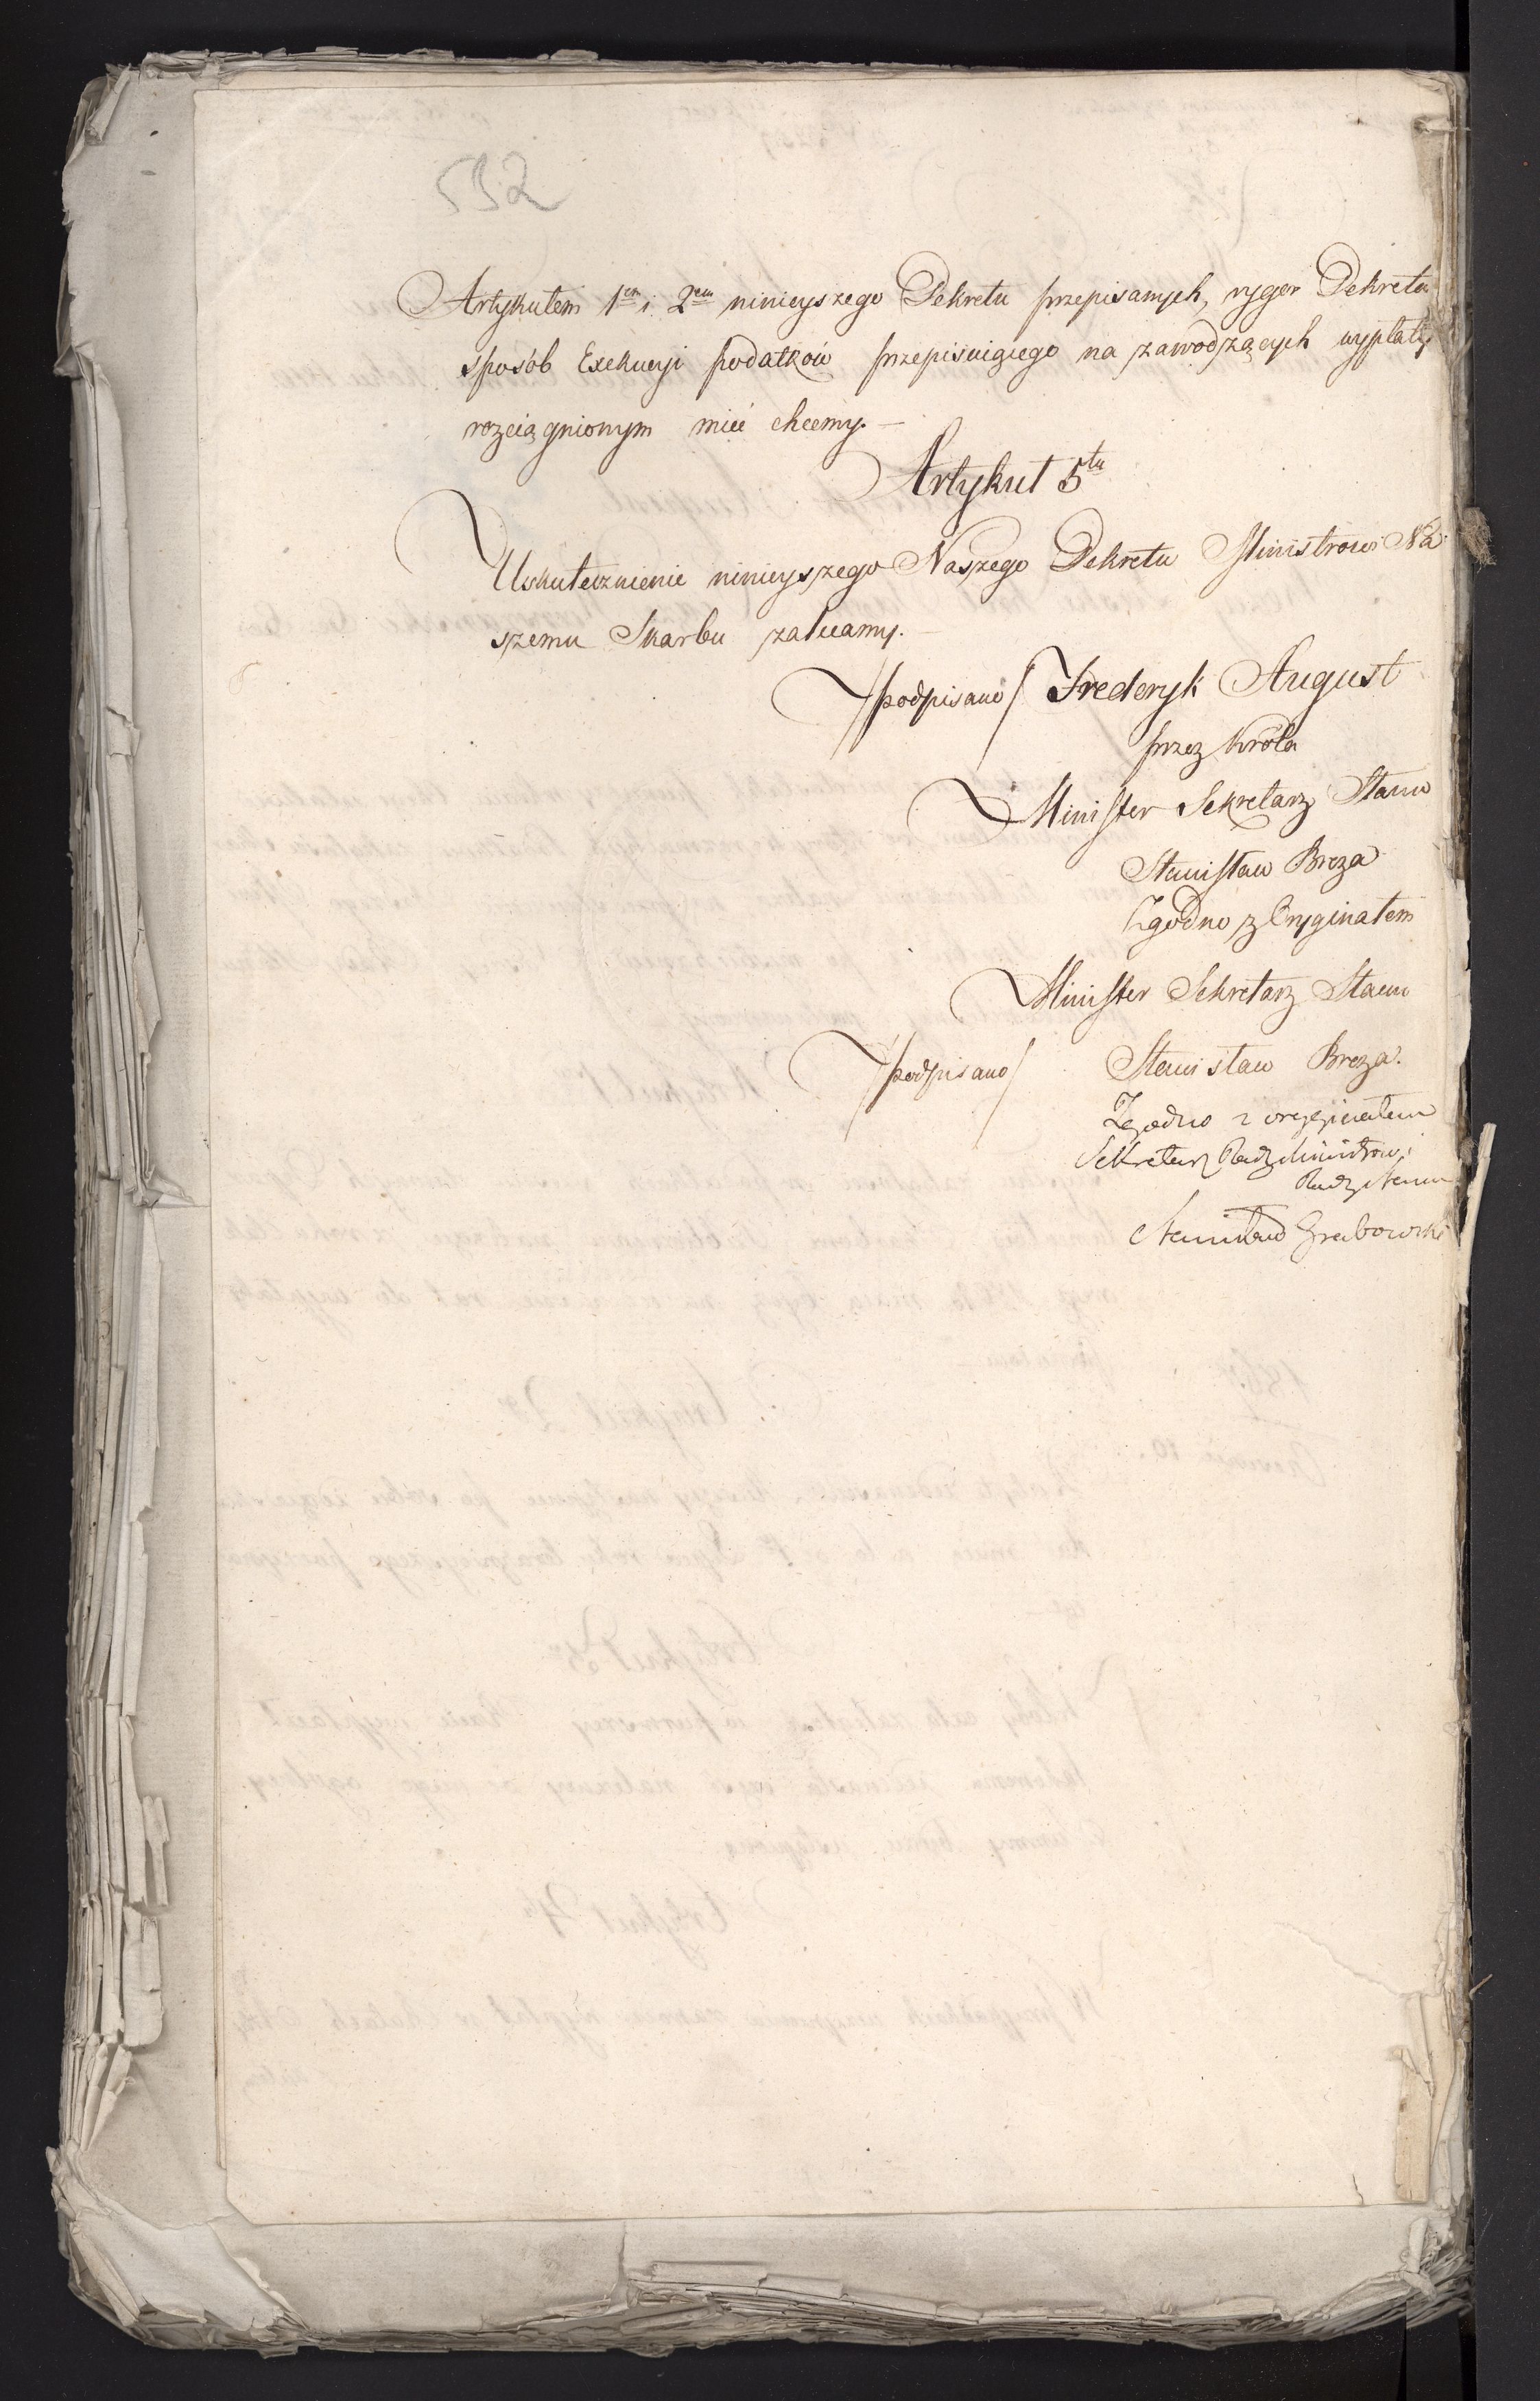 532
Artykułem 1em i 2em ninieyszego Dekretu przepisanych, rygor Dekretu
sposób Exekucyi podatków przepisuiącego na zawodzących wypłaty
rozciągnionym mieć chcemy. —
Artykuł 5ty
Uskutecznienie ninieyszego Naszego Dekretu Ministrowi Na
szemu Skarbu zalecamy. —
/podpisano/ Frederyk August
przez Króla
Minister Sekretarz Stanu
Stanisław Breza
Zgodno z Oryginałem
Minister Sekretarz Stanu
/podpisano/ Stanisław Breza.
Zgodno z oryginałem
Sekretarz Rady Ministrów i
Rady Stanu
Stanisław Grabowski